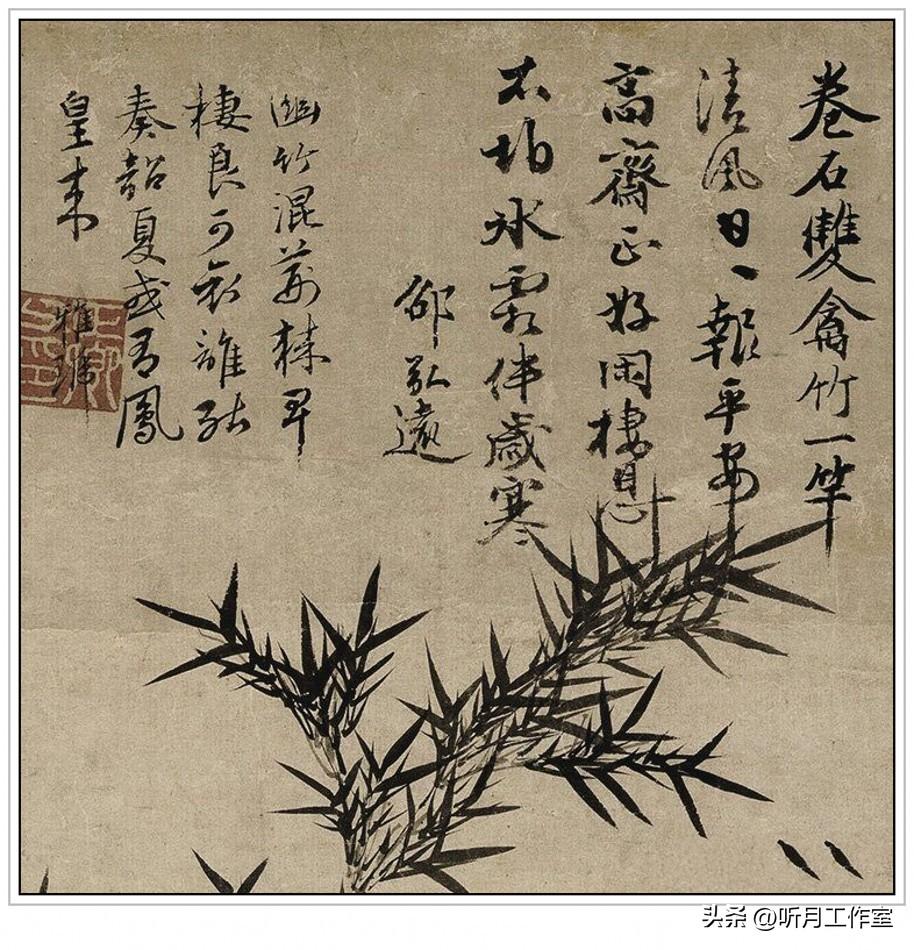 卷石雙禽竹一竿
清風日丶報平安
高齋正好閑棲息
不怕冰霜伴歲寒
邵弘遠
幽竹混荊棘卑
棲良可哀誰能
奏韶夏或有鳳
皇来
雅琥
头条 @听月工作室